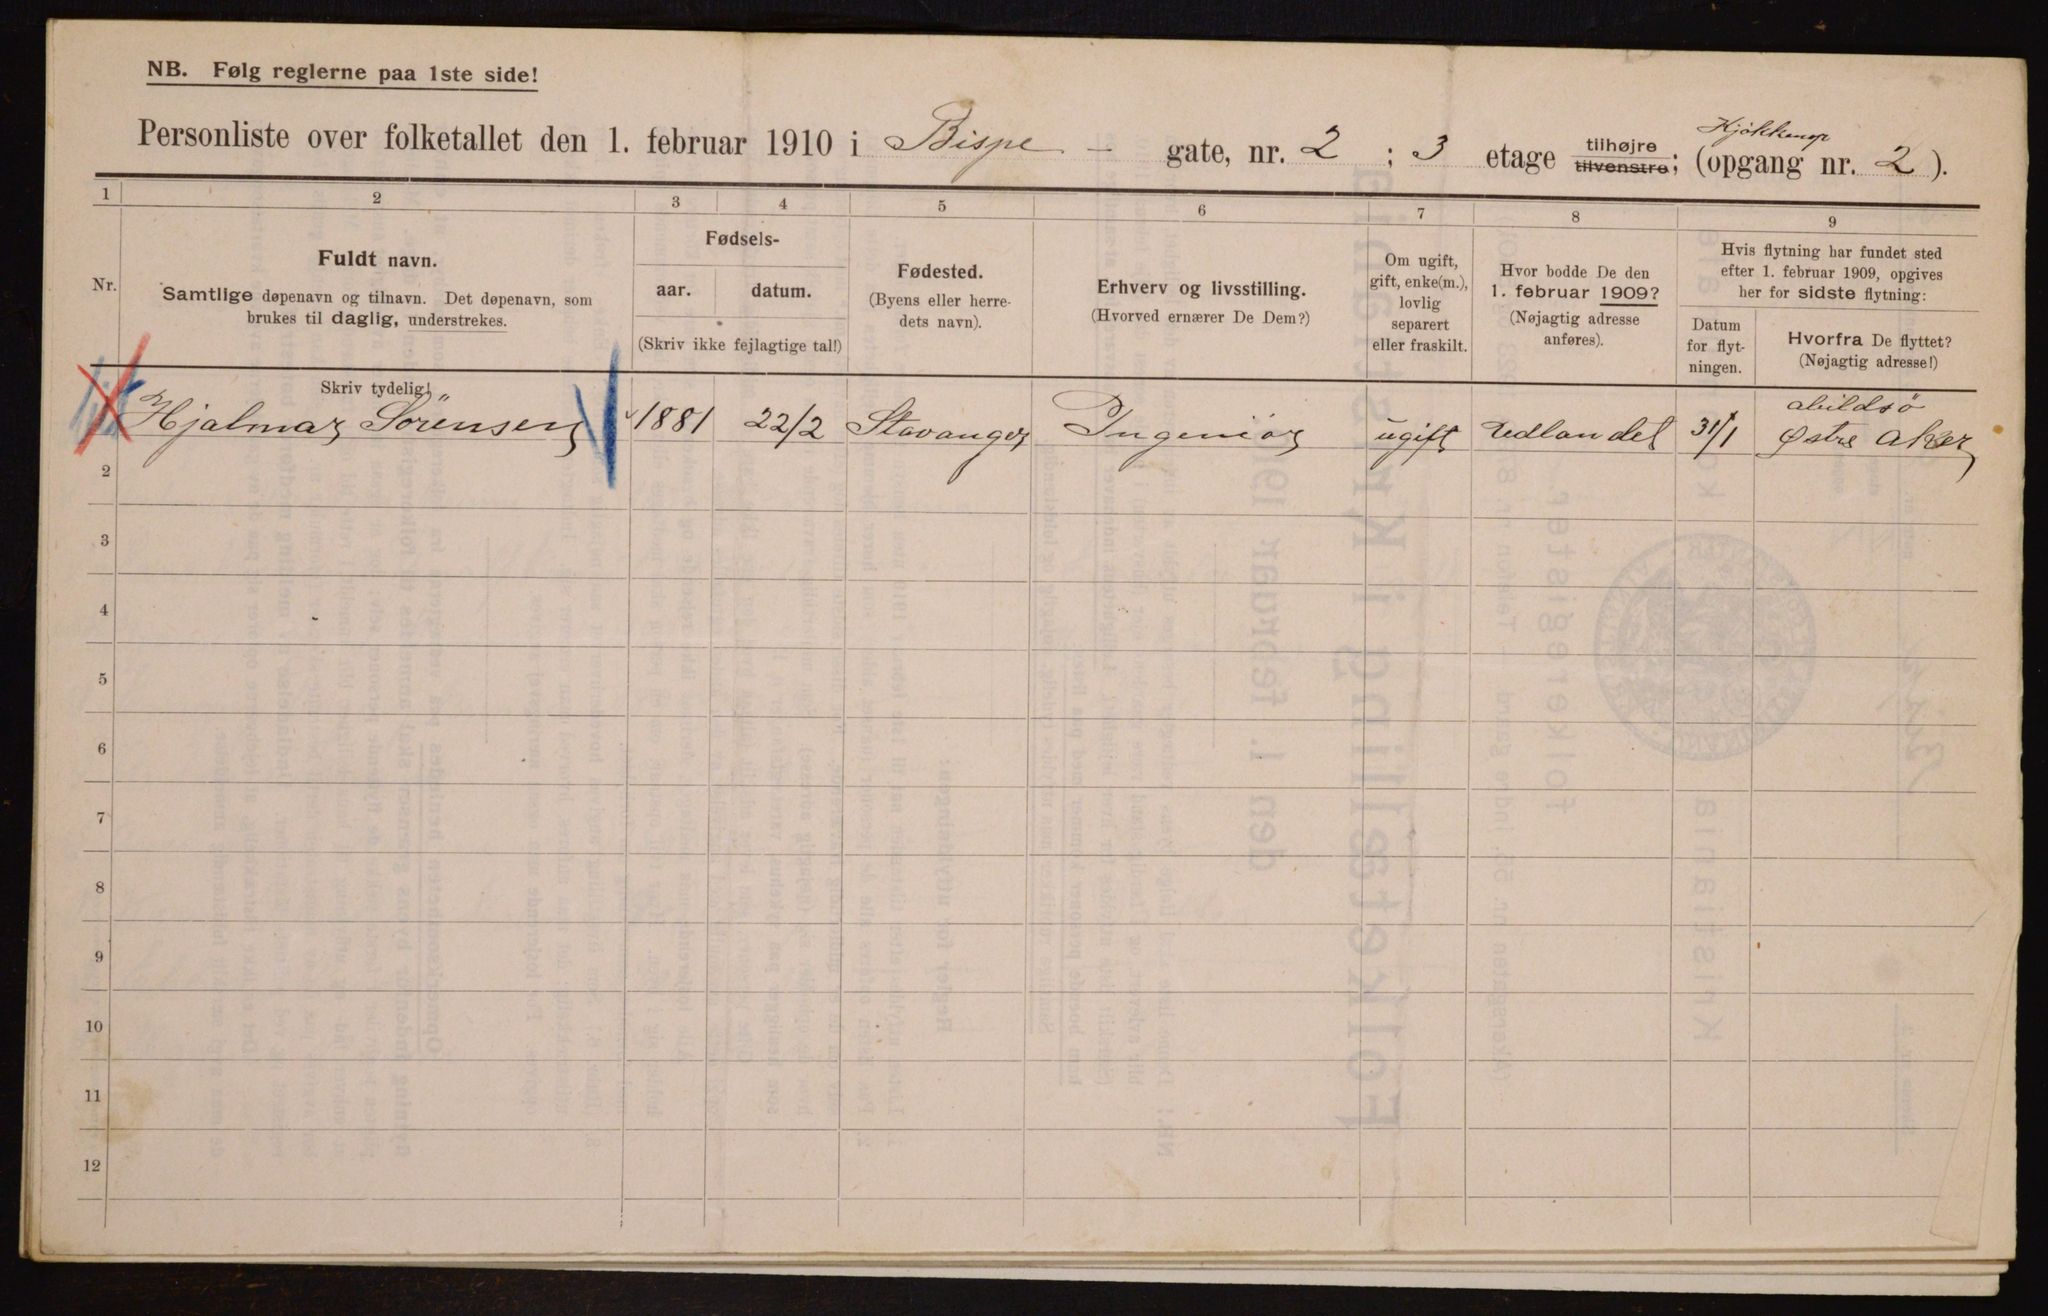 NB. Følg reglerne paa 1ste side!
Personliste over folketallet den 1. februar 1910 i Bispe - gate, nr. 2 ; 3 etage tilhøjre tilvenstre; (Kjøkkenop opgang nr. 2 ).
1 2 3 4 5 6 7 8 9
Nr.
Fuldt navn.
Samtlige døpenavn og tilnavn. Det døpenavn, som
brukes til daglig, understrekes.
Skriv tydelig!
Fødsels-
aar. datum.
(Skriv ikke fejlagtige tal!)
Fødested.
(Byens eller herre-
dets navn).
Erhverv og livsstilling.
(Hvorved ernærer De Dem?)
Om ugift,
gift, enke(m.),
lovlig
separert
eller fraskilt.
Hvor bodde De den
1. februar 1909?
(Nøjagtig adresse
anføres).
Hvis flytning har fundet sted
efter 1. februar 1909, opgives
her for sidste flytning:
Datum
for flyt-
ningen.
Hvorfra De flyttet?
(Nøjagtig adresse!)
Hjalmar Sörensen 1881 22/2 Stavanger Ingeniør ugift Udlandet 31/1 abildsö
Østre Aker
2
3
4
5
6
7
8
9
10
11
12